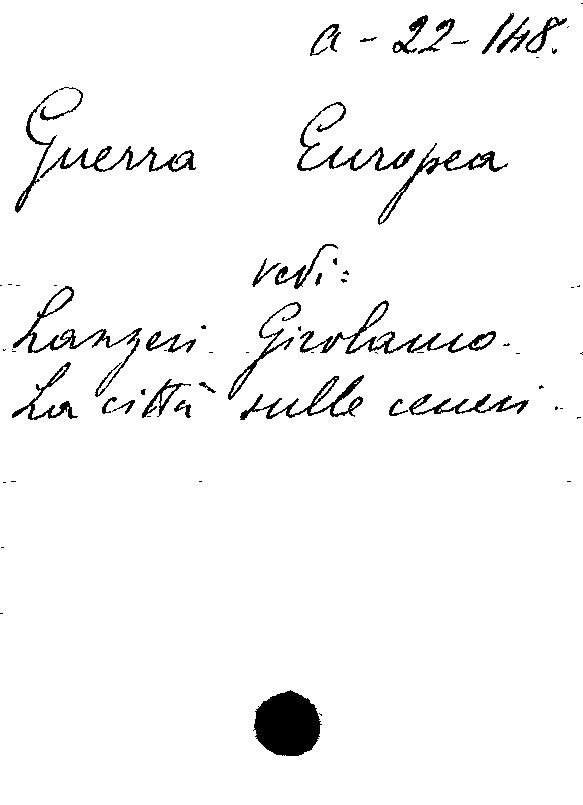 a-22-148.
Guerra Europea
vedi:
Lanzeri Girolamo.
La città sulle ceneri.